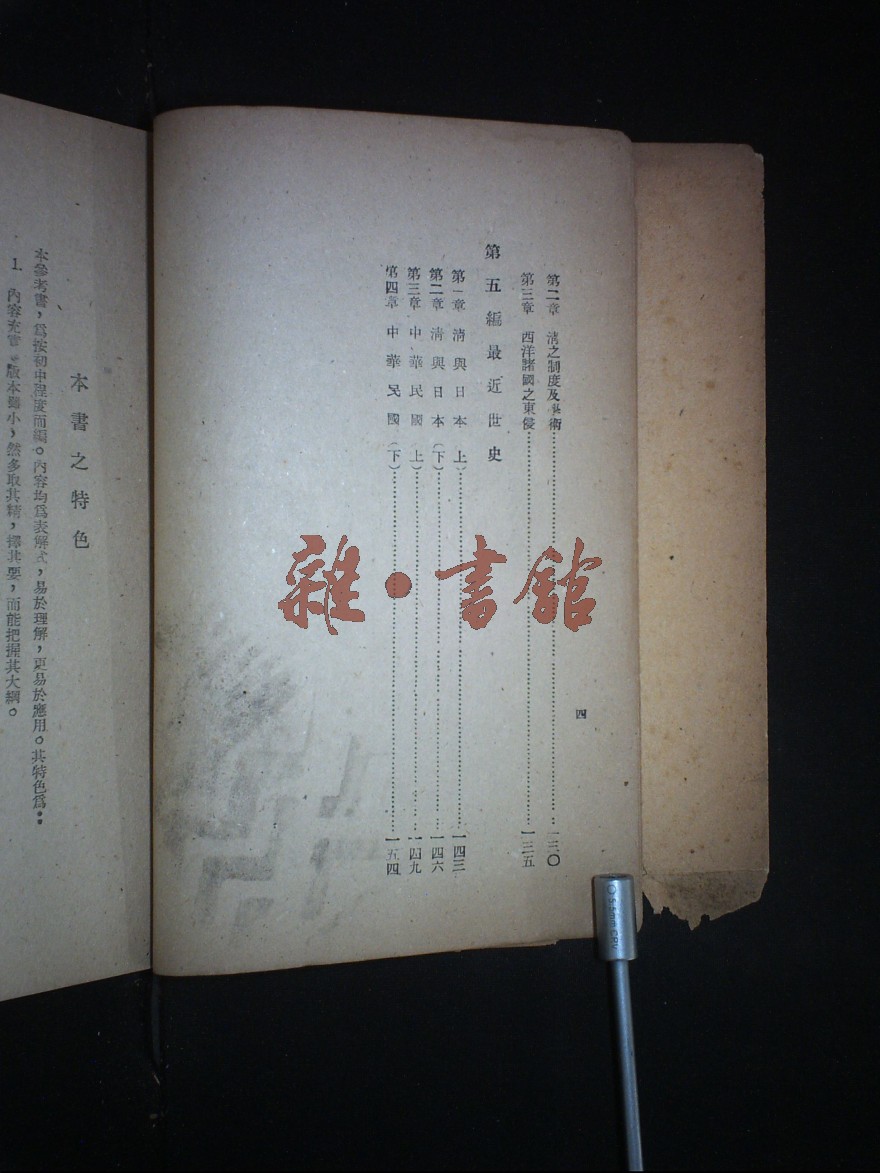 四
第二章 清之制度及藝術……一三〇
第三章 西洋諸國之東侵……一三五
第五編 最近世史
第一章 清與日本(上)……一四三
第二章 清與日本(下)……一四六
第三章 中華民國(上)……一四九
第四章 中華民國(下)……一五四
本書之特色
本參考書,爲按初中程度而編。內容均爲表解式,易於理解,更易於應用。其特色爲:
1. 內容充實 版本雖小,然多取其精,擇其要,而能把握其大綱。
雜·書館
5.5mm